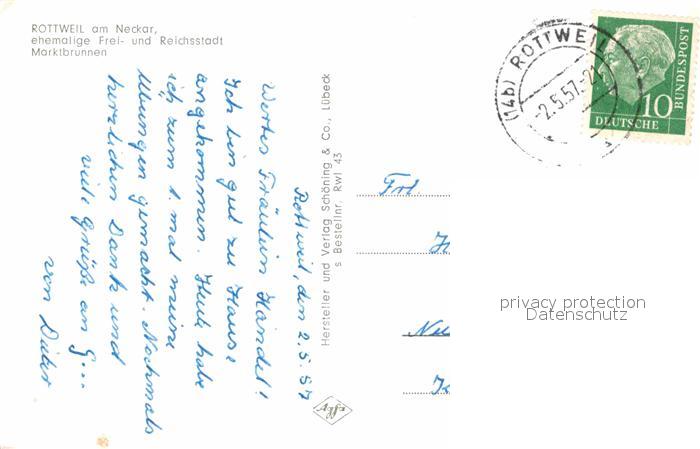 ROTTWEIL am Neckar,
ehemalige Frei- und Reichsstadt
Marktbrunnen
Rottweil, den 2.5.57
Wertes Fräulein Handel!
Ich bin gut zu Hause
angekommen. Heute habe
ich zum 1. mal meine
Übungen gemacht. Nochmals
herzlichen Dank und
viele Grüße an G...
von Dieter
Hersteller und Verlag Schöning & Co., Lübeck
s Bestellnr. Rwl 43
Agfa
(14b) ROTTWEIL
-2.5.57-2
10
DEUTSCHE
BUNDESPOST
Frl
privacy protection
Datenschutz